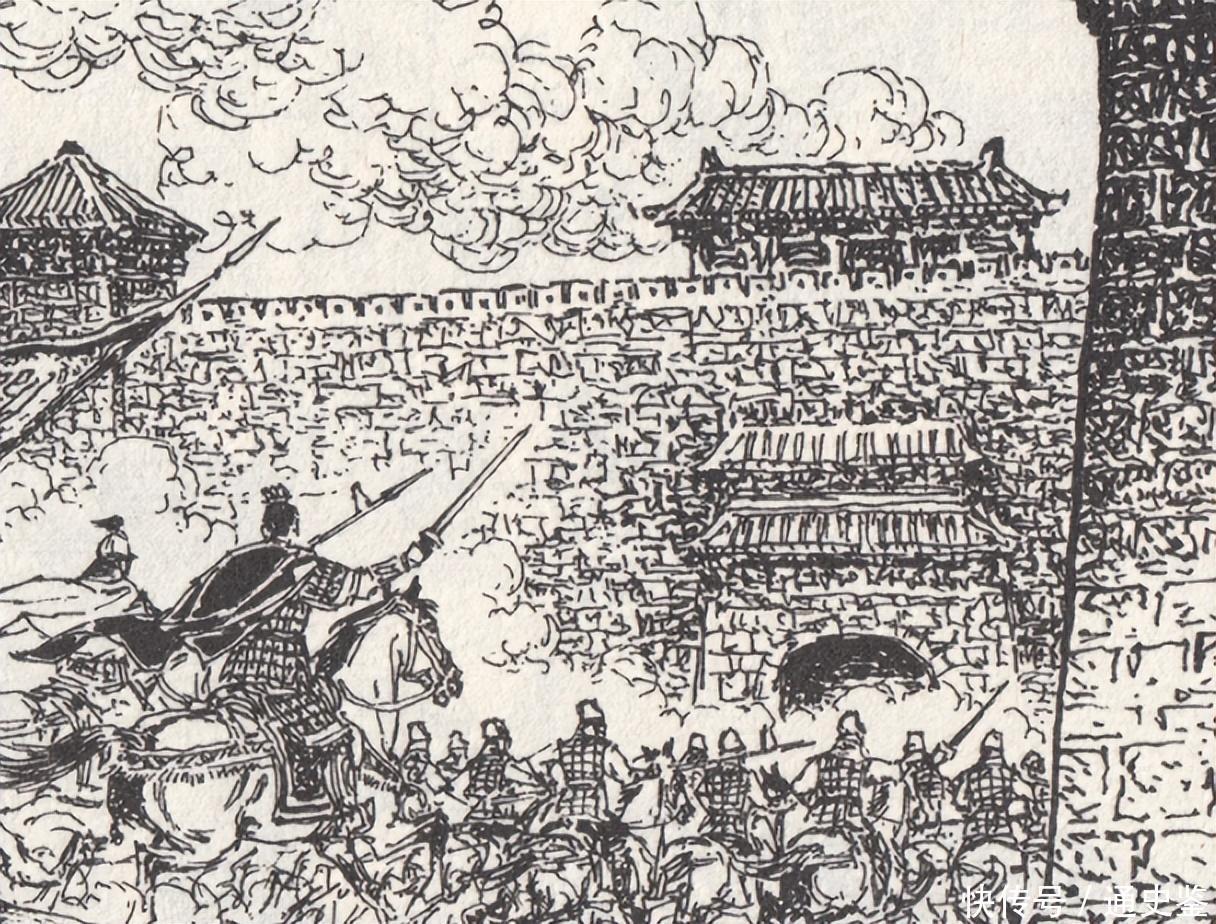 快传号 / 通史鉴